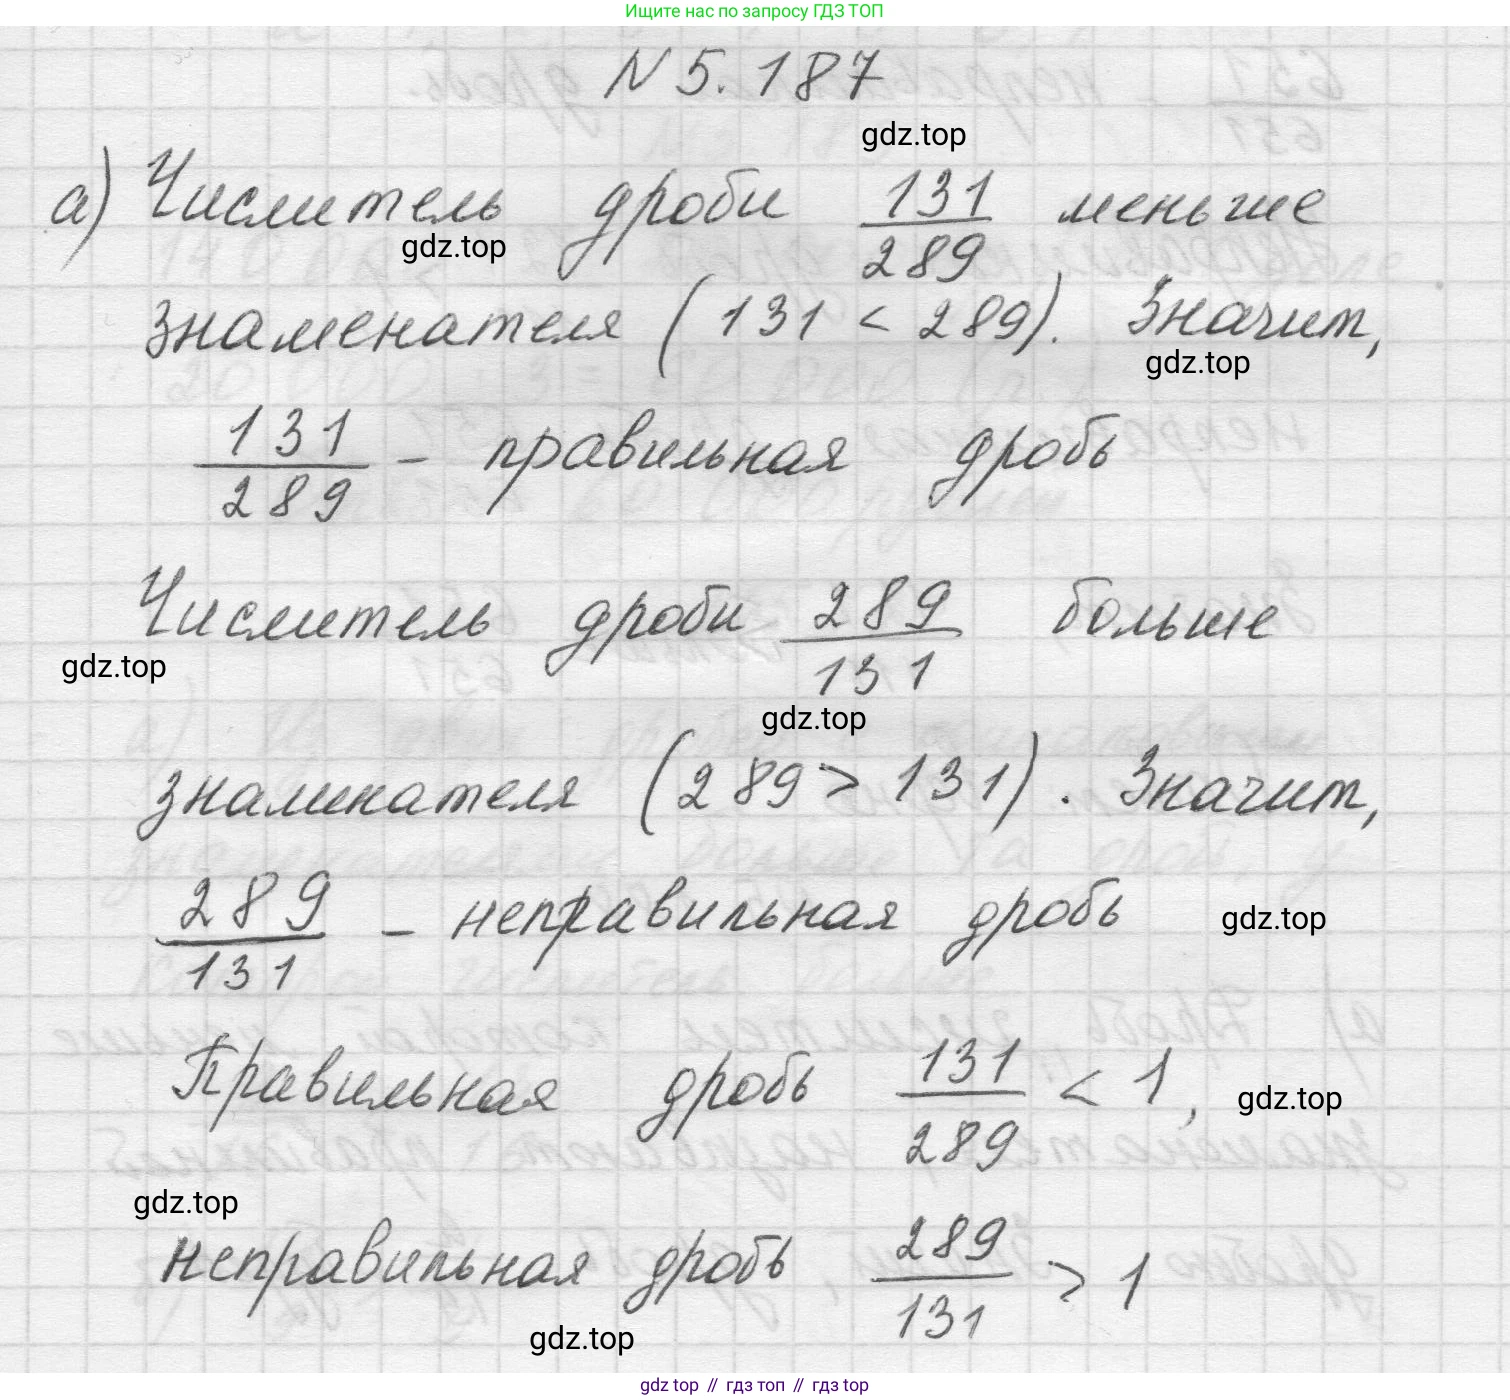 Ищите нас по запросу ГДЗ ТОП
N 5.187
gdz.top
а) Числитель дроби 131/289 меньше
gdz.top
знаменателя (131 < 289). Значит,
gdz.top
131/289 – правильная дробь
Числитель дроби 289/131 больше
gdz.top
gdz.top
знаминателя (289 > 131). Значит,
289/131 – неправильная дробь
gdz.top
Правильная дробь 131/289 < 1,
gdz.top
gdz.top
неправильная дробь 289/131 > 1
gdz.top
gdz top // гдз топ // гдз top